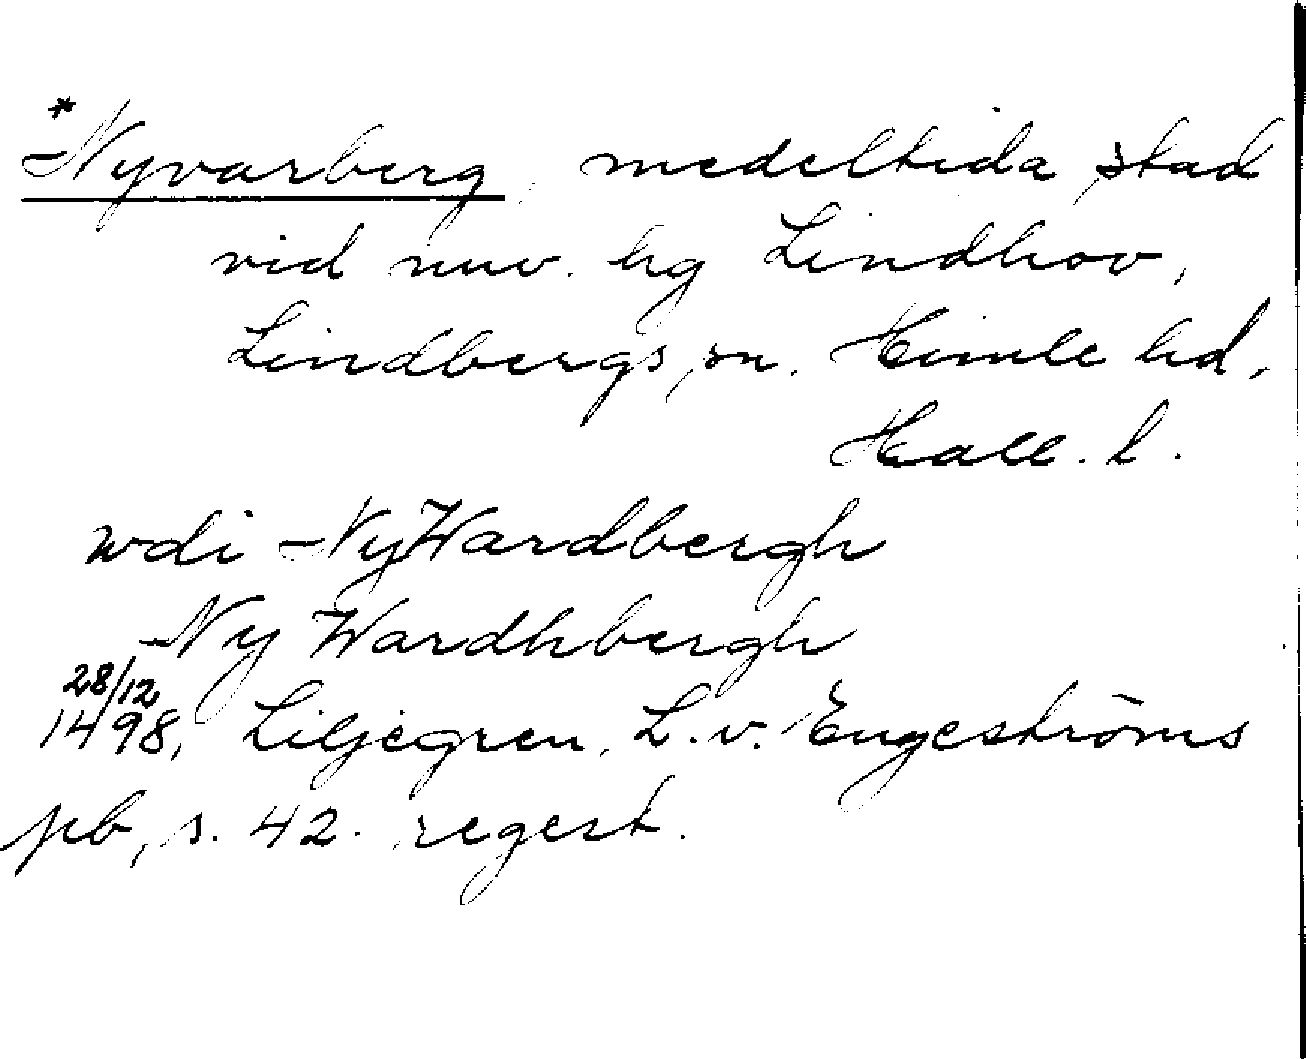 *Nyvarberg, medeltida stad
vid nuv. hg Lindhov,
Lindbergs sn. Himle hd,
Hall. l.
wdi NyWardbergh
Ny Wardhbergh
28/12
1498, Liljegren, L. v. Engeströms
pb, s. 42. regest.